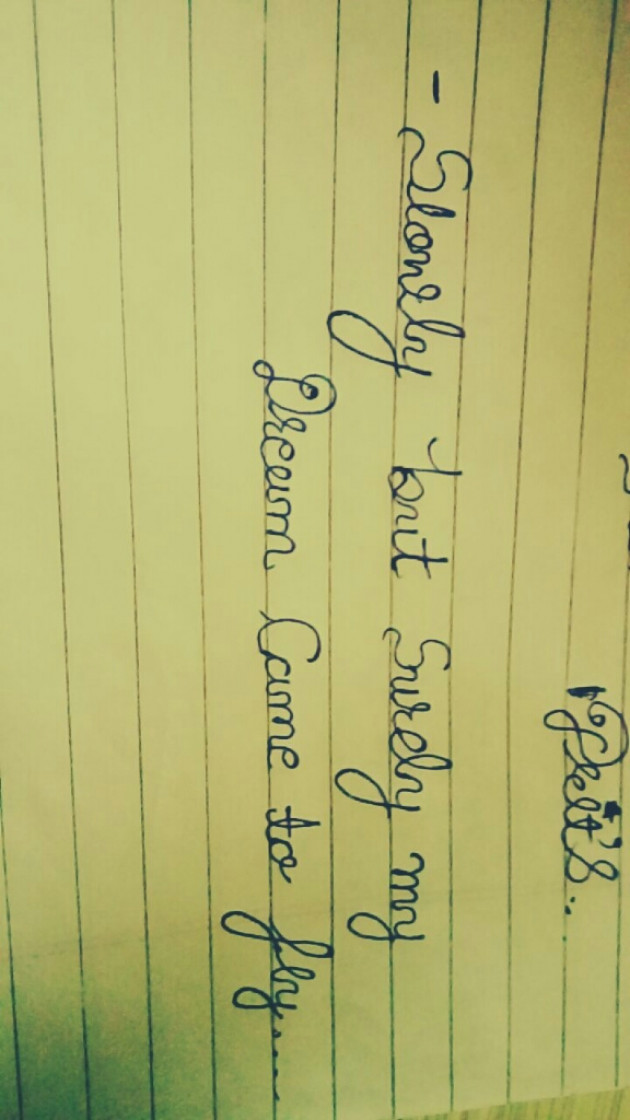 - Slowly but Surely my
Dream Came to fly....